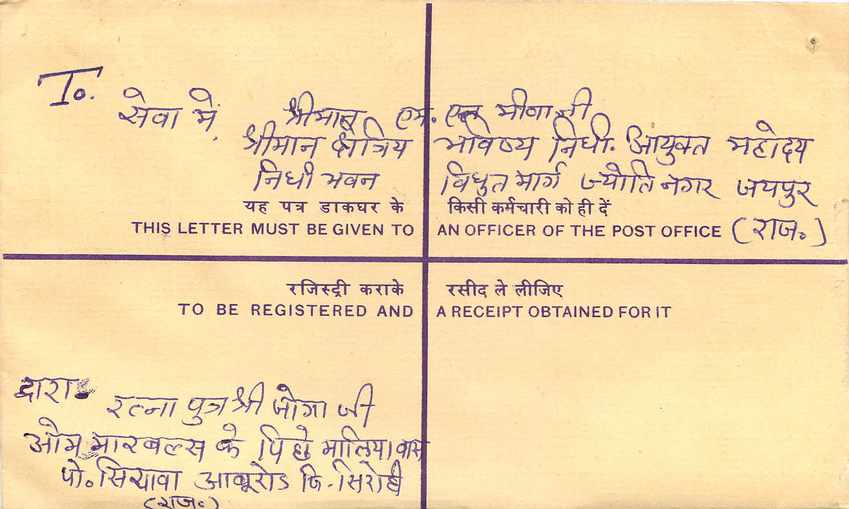 To.
सेवा में, श्रीमान एम. एल मीणा जी
श्रीमान क्षत्रिय भविष्य निधी. आयुक्त महोदय
निधी भवन विधुत मार्ग ज्योति नगर जयपुर
यह पत्र डाकघर के किसी कर्मचारी को ही दें
THIS LETTER MUST BE GIVEN TO AN OFFICER OF THE POST OFFICE (राज०)
रजिस्ट्री कराके रसीद ले लीजिए
TO BE REGISTERED AND A RECEIPT OBTAINED FOR IT
द्वारा
रत्ना पुत्र श्री जोगा जी
ओम मारबल्स के पिछे मालिया वास
पो० सियावा आबूरोड जि. सिरोही
(राज०)